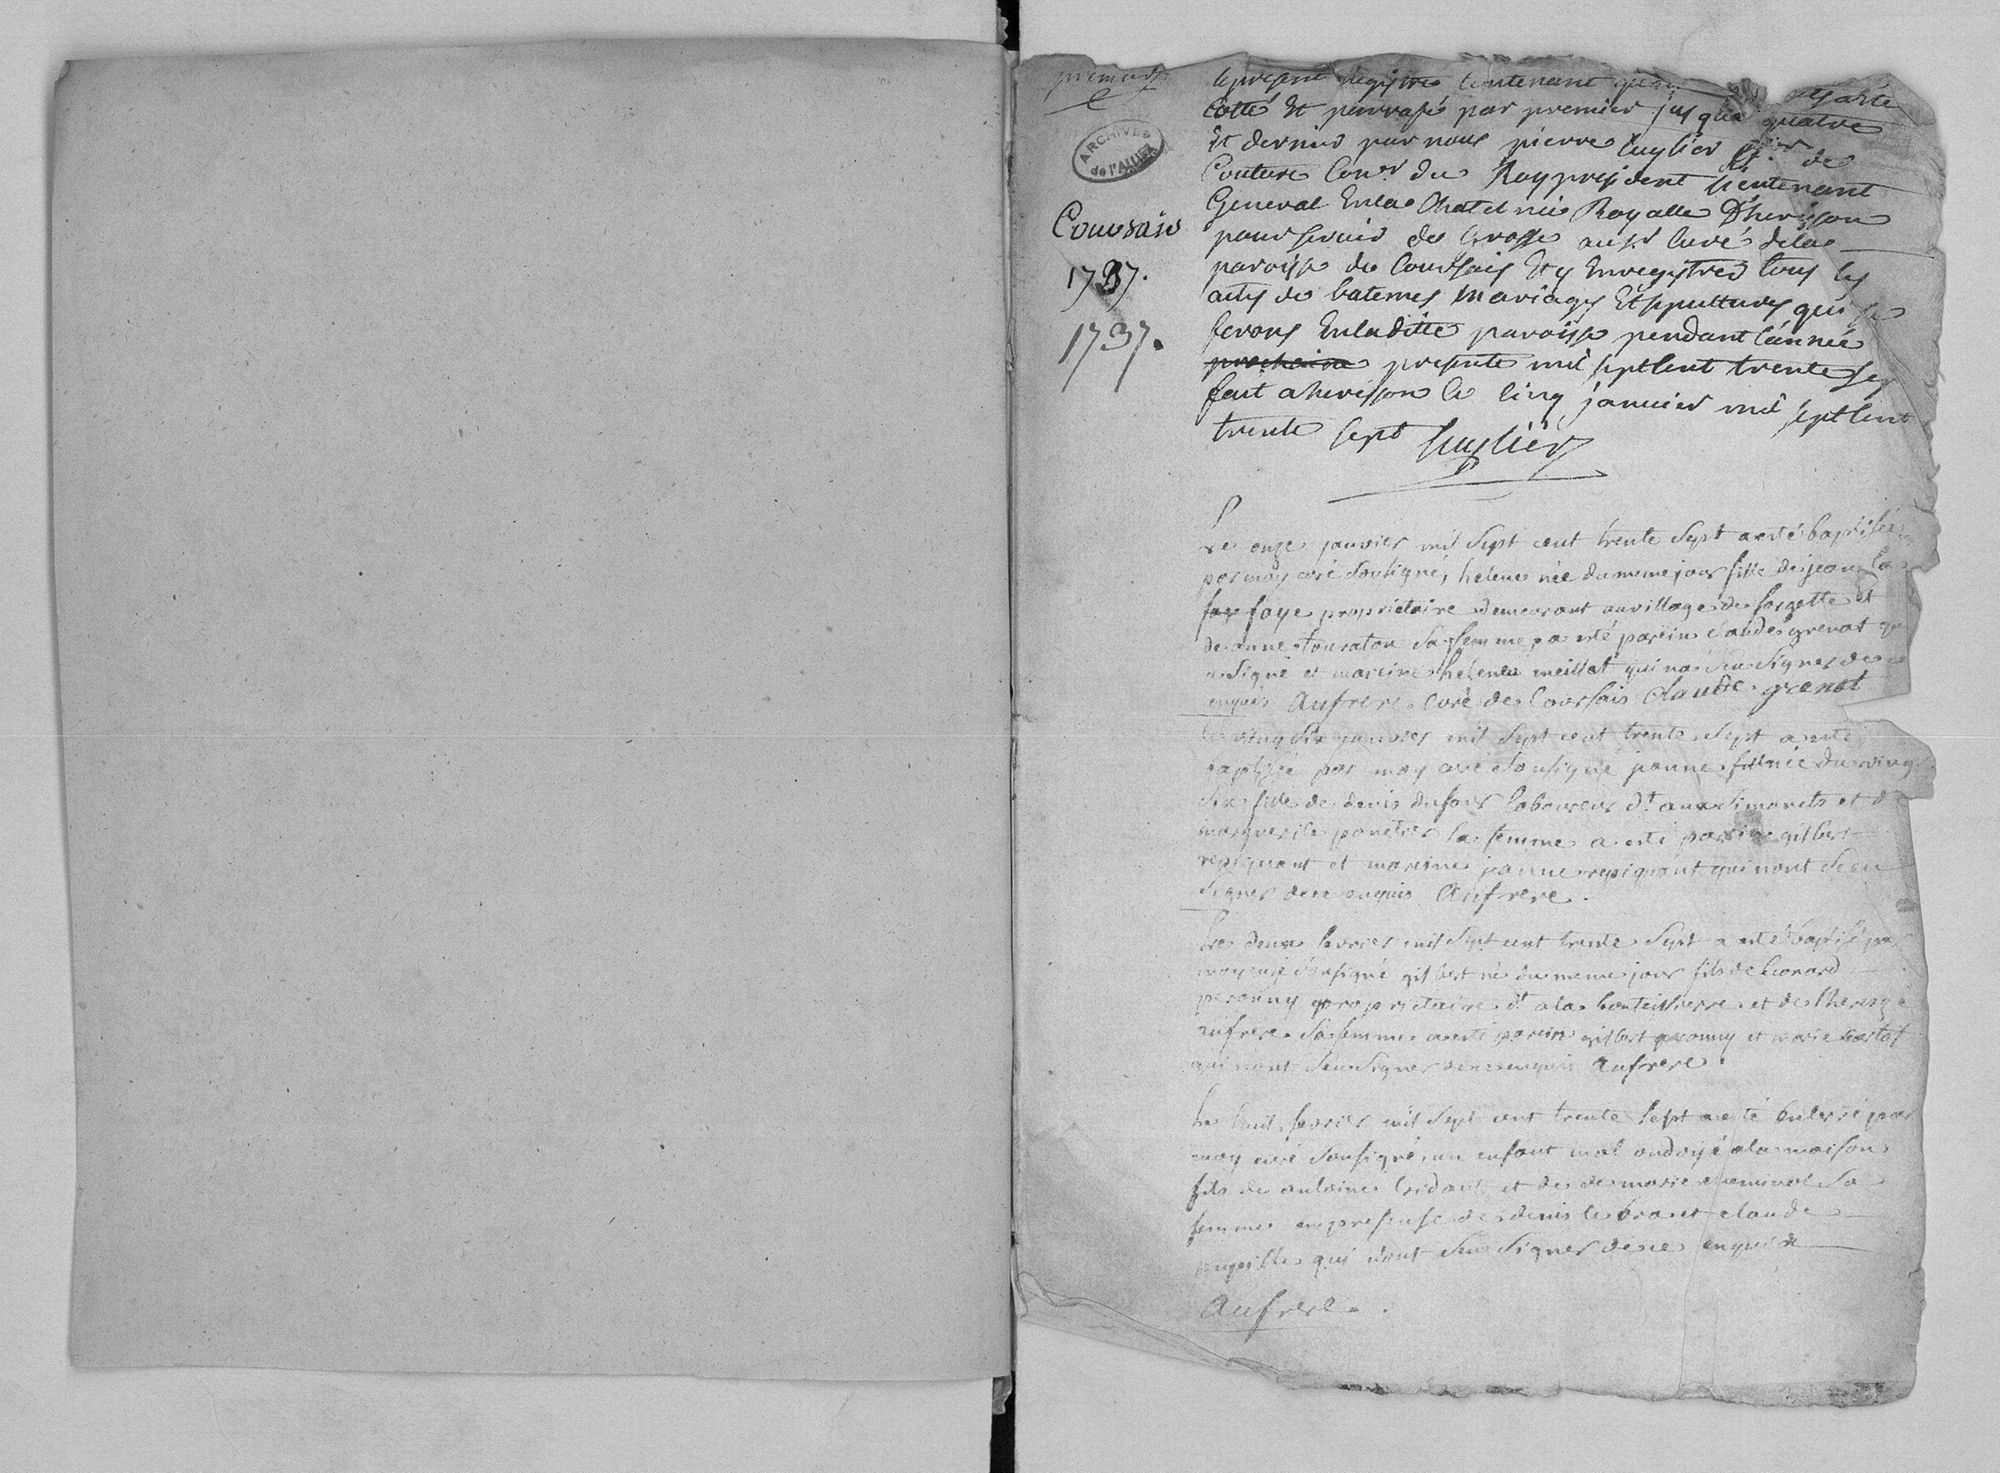 premier
ARCHIVES
de l'ALLIER
Coursais
1737.
1737.
le present registre contenant
cotté Et parrafé par premier jusqua quatre
Et dernier par nous pierre Luylier de
Couture Con.er du Roy president Lieutenant
General Enla Chatelnie Royalle D'herisson
pour servir de Grosse au sr Curé dela
paroisse de Coursais Et y Enregistrer tous les
actes de batemes Mariages Et sepultures qui se
feront Enladitte paroisse pendant lánnée
prochaine presente mil sept Cent trente sept
fait a herisson le Cinq janvier mil sept Cent
trente sept Luylier
Le onze janvier mil Sept cent trente Sept a esté baptisée
par moy curé Sousigné, helene née du meme jour fille de jean la
faye propriétaire demeurant au village de forgette et
de anne touraton Sa femme, a esté parein Claude grenat qui
a Signé et mareine helene meillat qui na Seu Signer de ce
enquis Aufrere curé de Coursais Claude grenat
Le vingt Six janvier mil Sept cent trente Sept a esté
baptisée par moy curé Sousigné janne née du vingt
Six fille de denis dufour laboureur dt aux Simonets et de
marguerite panetier Sa femme a esté parein gilbert
repiquant et mareine janne repiquant qui nont Seu
Signer dece enquis Aufrere.
Le deux fevrier mil Sept cent trente Sept a esté baptisé par
moy curé Sousigné gilbert né du meme jour fils de leonard
peronny propriétaire dt a la bouteillierre et de therese
aufrere Sa femme a esté parein gilbert peronny et marie
qui nont Seu Signer dece enquis Aufrere.
Le huit fevrier mil Sept cent trente Sept a esté enterré par
moy curé Sousigné, un enfant mal ondoyé a la maison
fils de antoine tridant et de de marie cheminol Sa
femme en presense de denis le bra et claude
qui nont Seu Signer dece enquis
Aufrere.